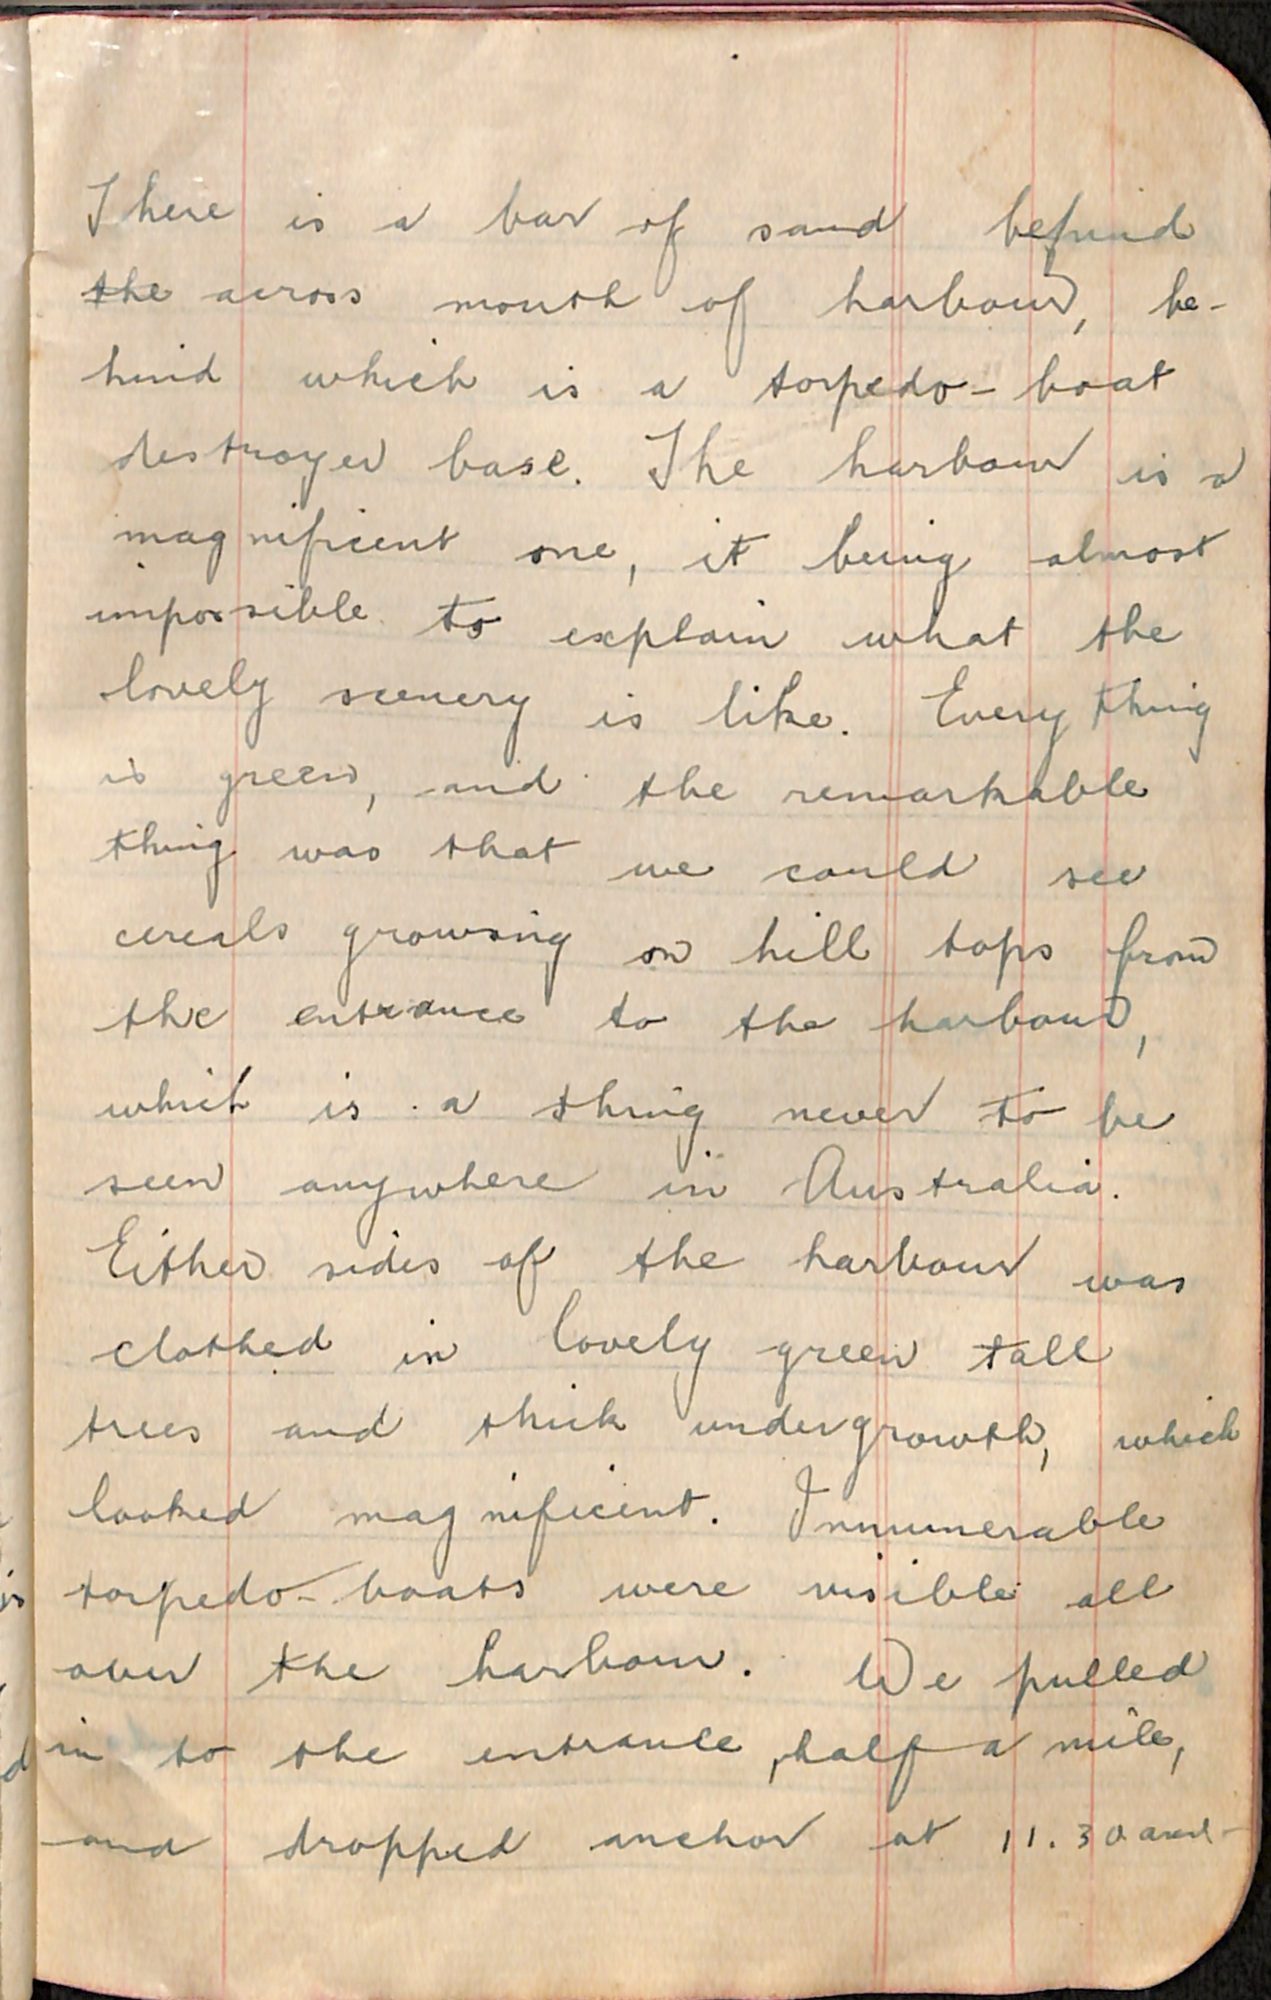 There is a bar of sand behind
the across mouth of harbour, be-
hind which is a torpedo-boat
destroyer base. The harbour is a
magnificent one, it being almost
impossible to explain what the
lovely scenery is like. Every thing
is green, and the remarkable
thing was that we could see
cereals growing on hill tops from
the entrance to the harbour,
which is a thing never to be
seen anywhere in Australia.
Either sides of the harbour was
clothed in lovely green tall
trees and thick undergrowth, which
looked magnificent. Innumerable
torpedo-boats were visible all
over the harbour. We pulled
in to the entrance, half a mile,
and dropped anchor at 11.30